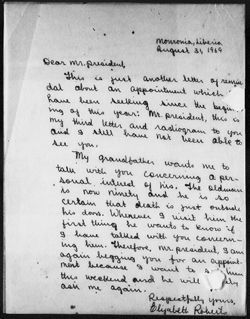 Monrovia, Liberia
August 31, 1969
Dear Mr. President,
This is just another letter of remin
dal about an appointment which I
have been seeking since the beginn-
ing of this year. Mr. President, this is
my third letter and radiogram to you
and I still have not been able to
see you.
My grandfather wants me to
talk with you concerning a per-
sonal interest of his. The oldman
is now ninety and he is so
certain that death is just outside
his door. Whenever I visit him the
first thing he wants to know if
I have talked with you concern-
ing him. Therefore, Mr. President, I am
again begging you for an appoint-
ment because I want to see him
this weekend and he will
ask me again.
Respectfully yours,
Elizabeth